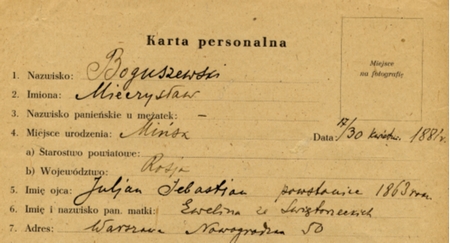 Karta personalna
Miejsce
na fotografię
1. Nazwisko: Boguszewski
2. Imiona: Mieczysław
3. Nazwisko panieńskie u mężatek: -
4. Miejsce urodzenia: Mińsk Data: 17/30 1881 r.
a) Starostwo powiatowe:
b) Województwo: Rosja
5. Imię ojca: Juljan Sebastian powstaniec 1863 roku
6. Imię i nazwisko pan. matki: Ewelina ze
7. Adres: Warszawa Nowogrodzka 50